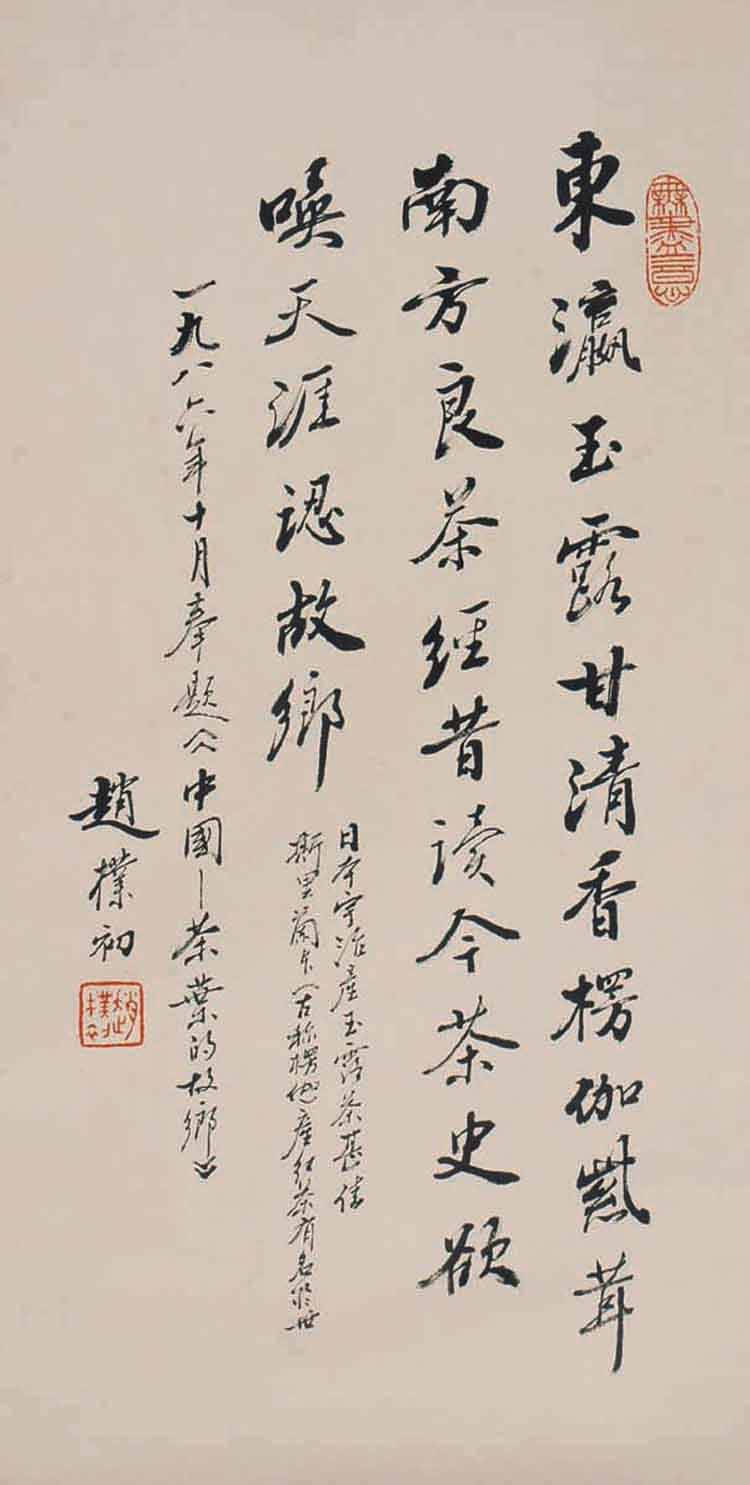 無盡意
東瀛玉露甘清香楞伽紫茸
南方良茶經昔读今茶史欲
唤天涯認故鄉
日本宇治產玉露茶甚佳
斯里蘭卡（古称楞伽產红茶有名於世
一九八六年十月奉題《中國—茶葉的故鄉》
趙樸初
趙樸初